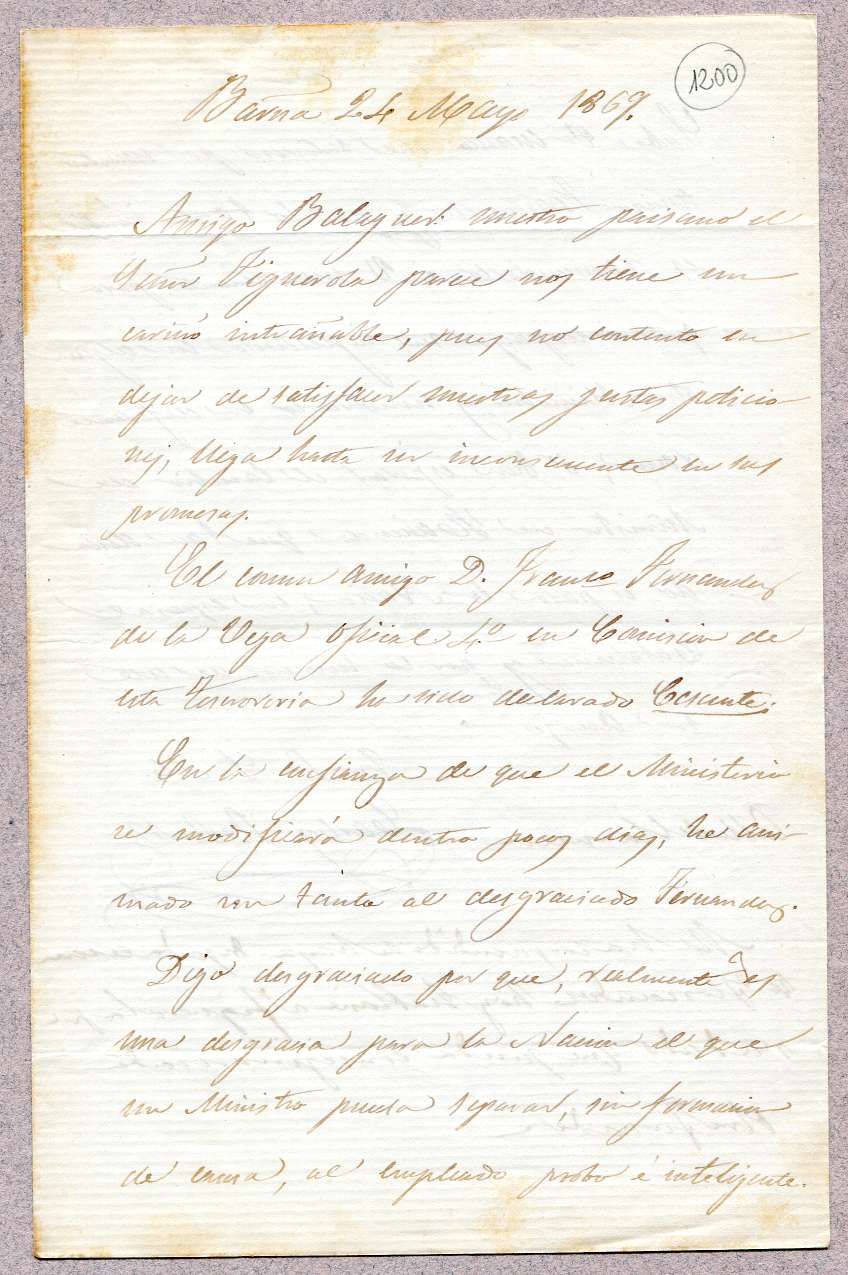 1200
Barna 24 Mayo 1869.
Amigo Balaguer: nuestro paisano el
Señor Figuerola parece nos tiene un
cariño intrañable, pues no contento en
dejar de satisfacer nuestras justas peticio-
nes, llega hasta ser inconsecuente en sus
promesas.
El comun amigo D. Franco Fernandez
de la Vega oficial 4º en Comision de
esta tesoreria ha sido declarado Cesante.
En la confianza de que el Ministerio
se modificará dentro pocos dias, he ani-
mado un tanto al desgraciado Fernandez.
Digo desgraciado por que, realmente es
una desgracia para la Nacion el que
un Ministro pueda separar, sin formacion
de causa, al empleado probo é inteligente.